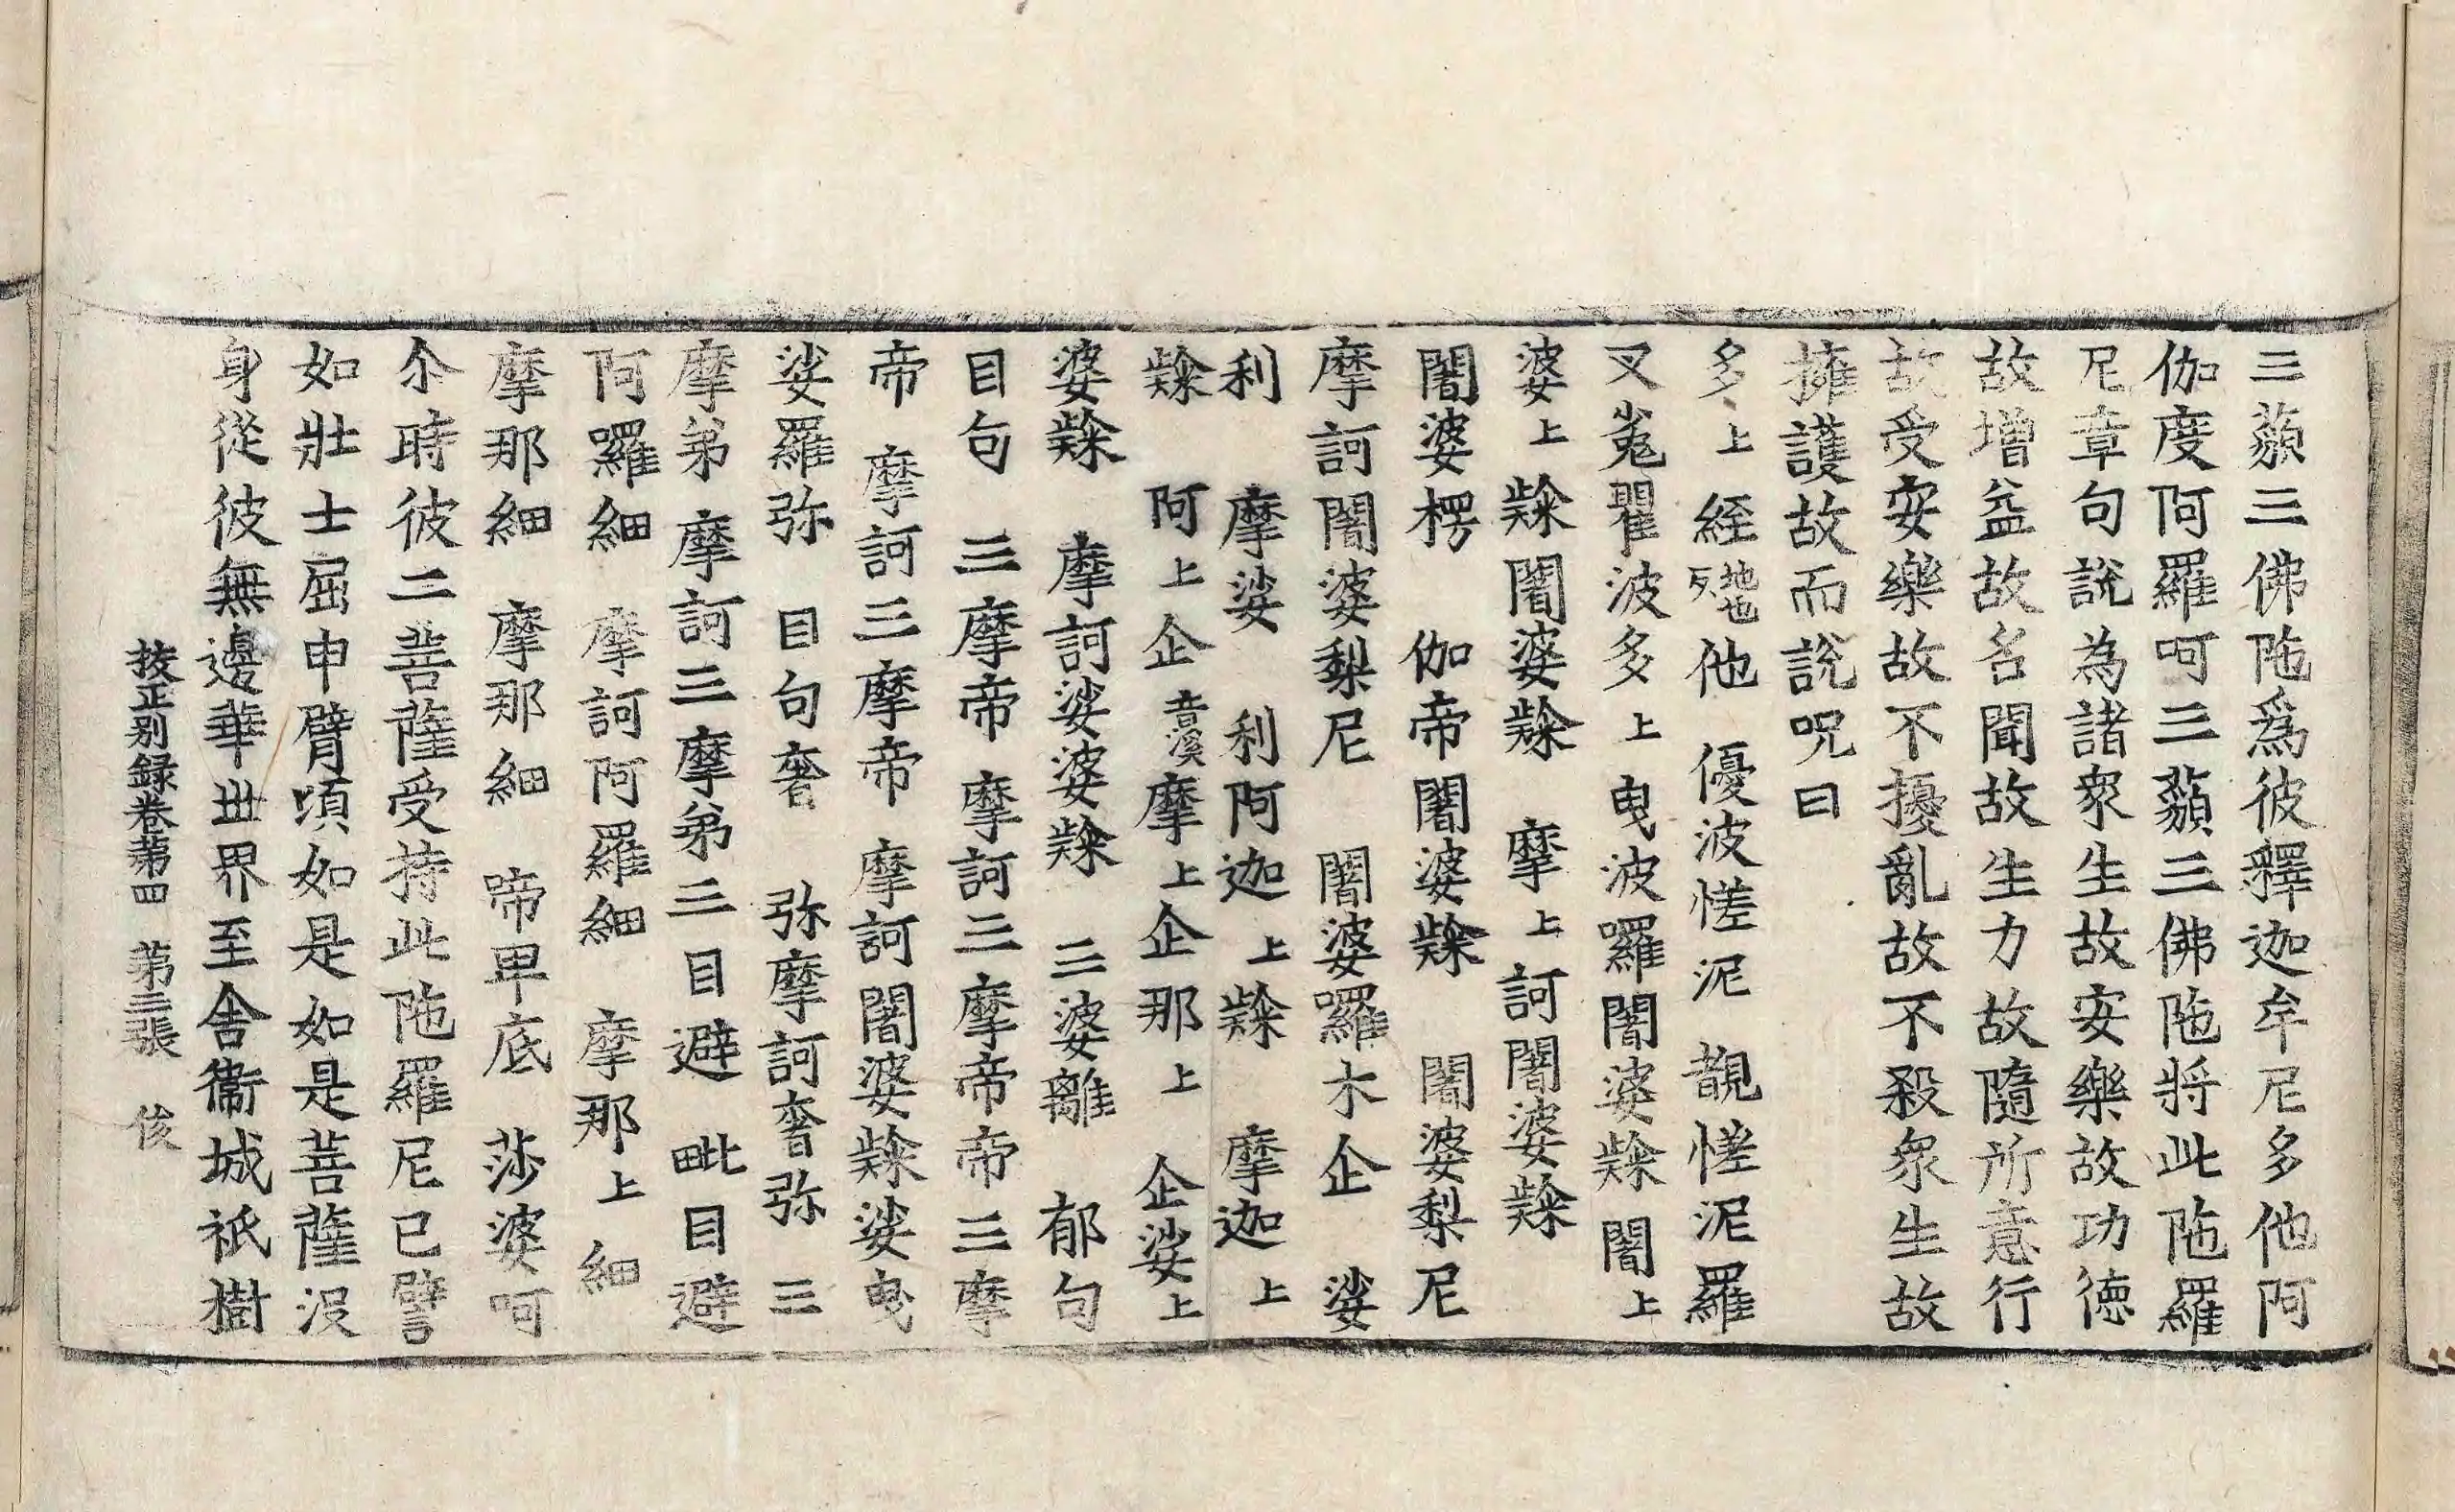 三藐三佛陁爲彼釋迦牟尼多他阿
伽度阿羅呵三藐三佛陁將此陁羅
尼章句說為諸衆生故安樂故功徳
故增益故名聞故生力故隨所意行
故受安樂故不擾亂故不殺衆生故
擁護故而說呪曰
多上絰地也反他 優波㗂泥 覩㗂泥羅
叉嵬瞿波多上曳波囉闍婆隸闍上
婆上隸闍婆隸 摩上訶闍婆隸
闍婆楞 伽帝闍婆隸 闍婆梨尼
摩訶闍婆梨尼 闍婆囉木企 娑
利 摩娑 利阿迦上隸 摩迦上
隸 阿上企音溪摩上企那上 企娑上
婆隸 摩訶娑婆隸 三婆離 郁句
目句 三摩帝 摩訶三摩帝帝三摩
帝 摩訶三摩帝 摩訶闍婆隸娑曳
娑羅弥 目句奢 弥摩訶奢弥 三
摩弟摩訶三摩弟三目避 毗目避
阿囉細 摩訶阿羅細 摩那上細
摩那細 摩那細 啼卑底 莎婆呵
尒時彼二菩薩受持此陁羅尼已譬
如壯士屈申臂頃如是如是菩薩没
身從彼無邊華丗界至舎衞城祇樹
挍正别録卷苐四 苐三張 俊